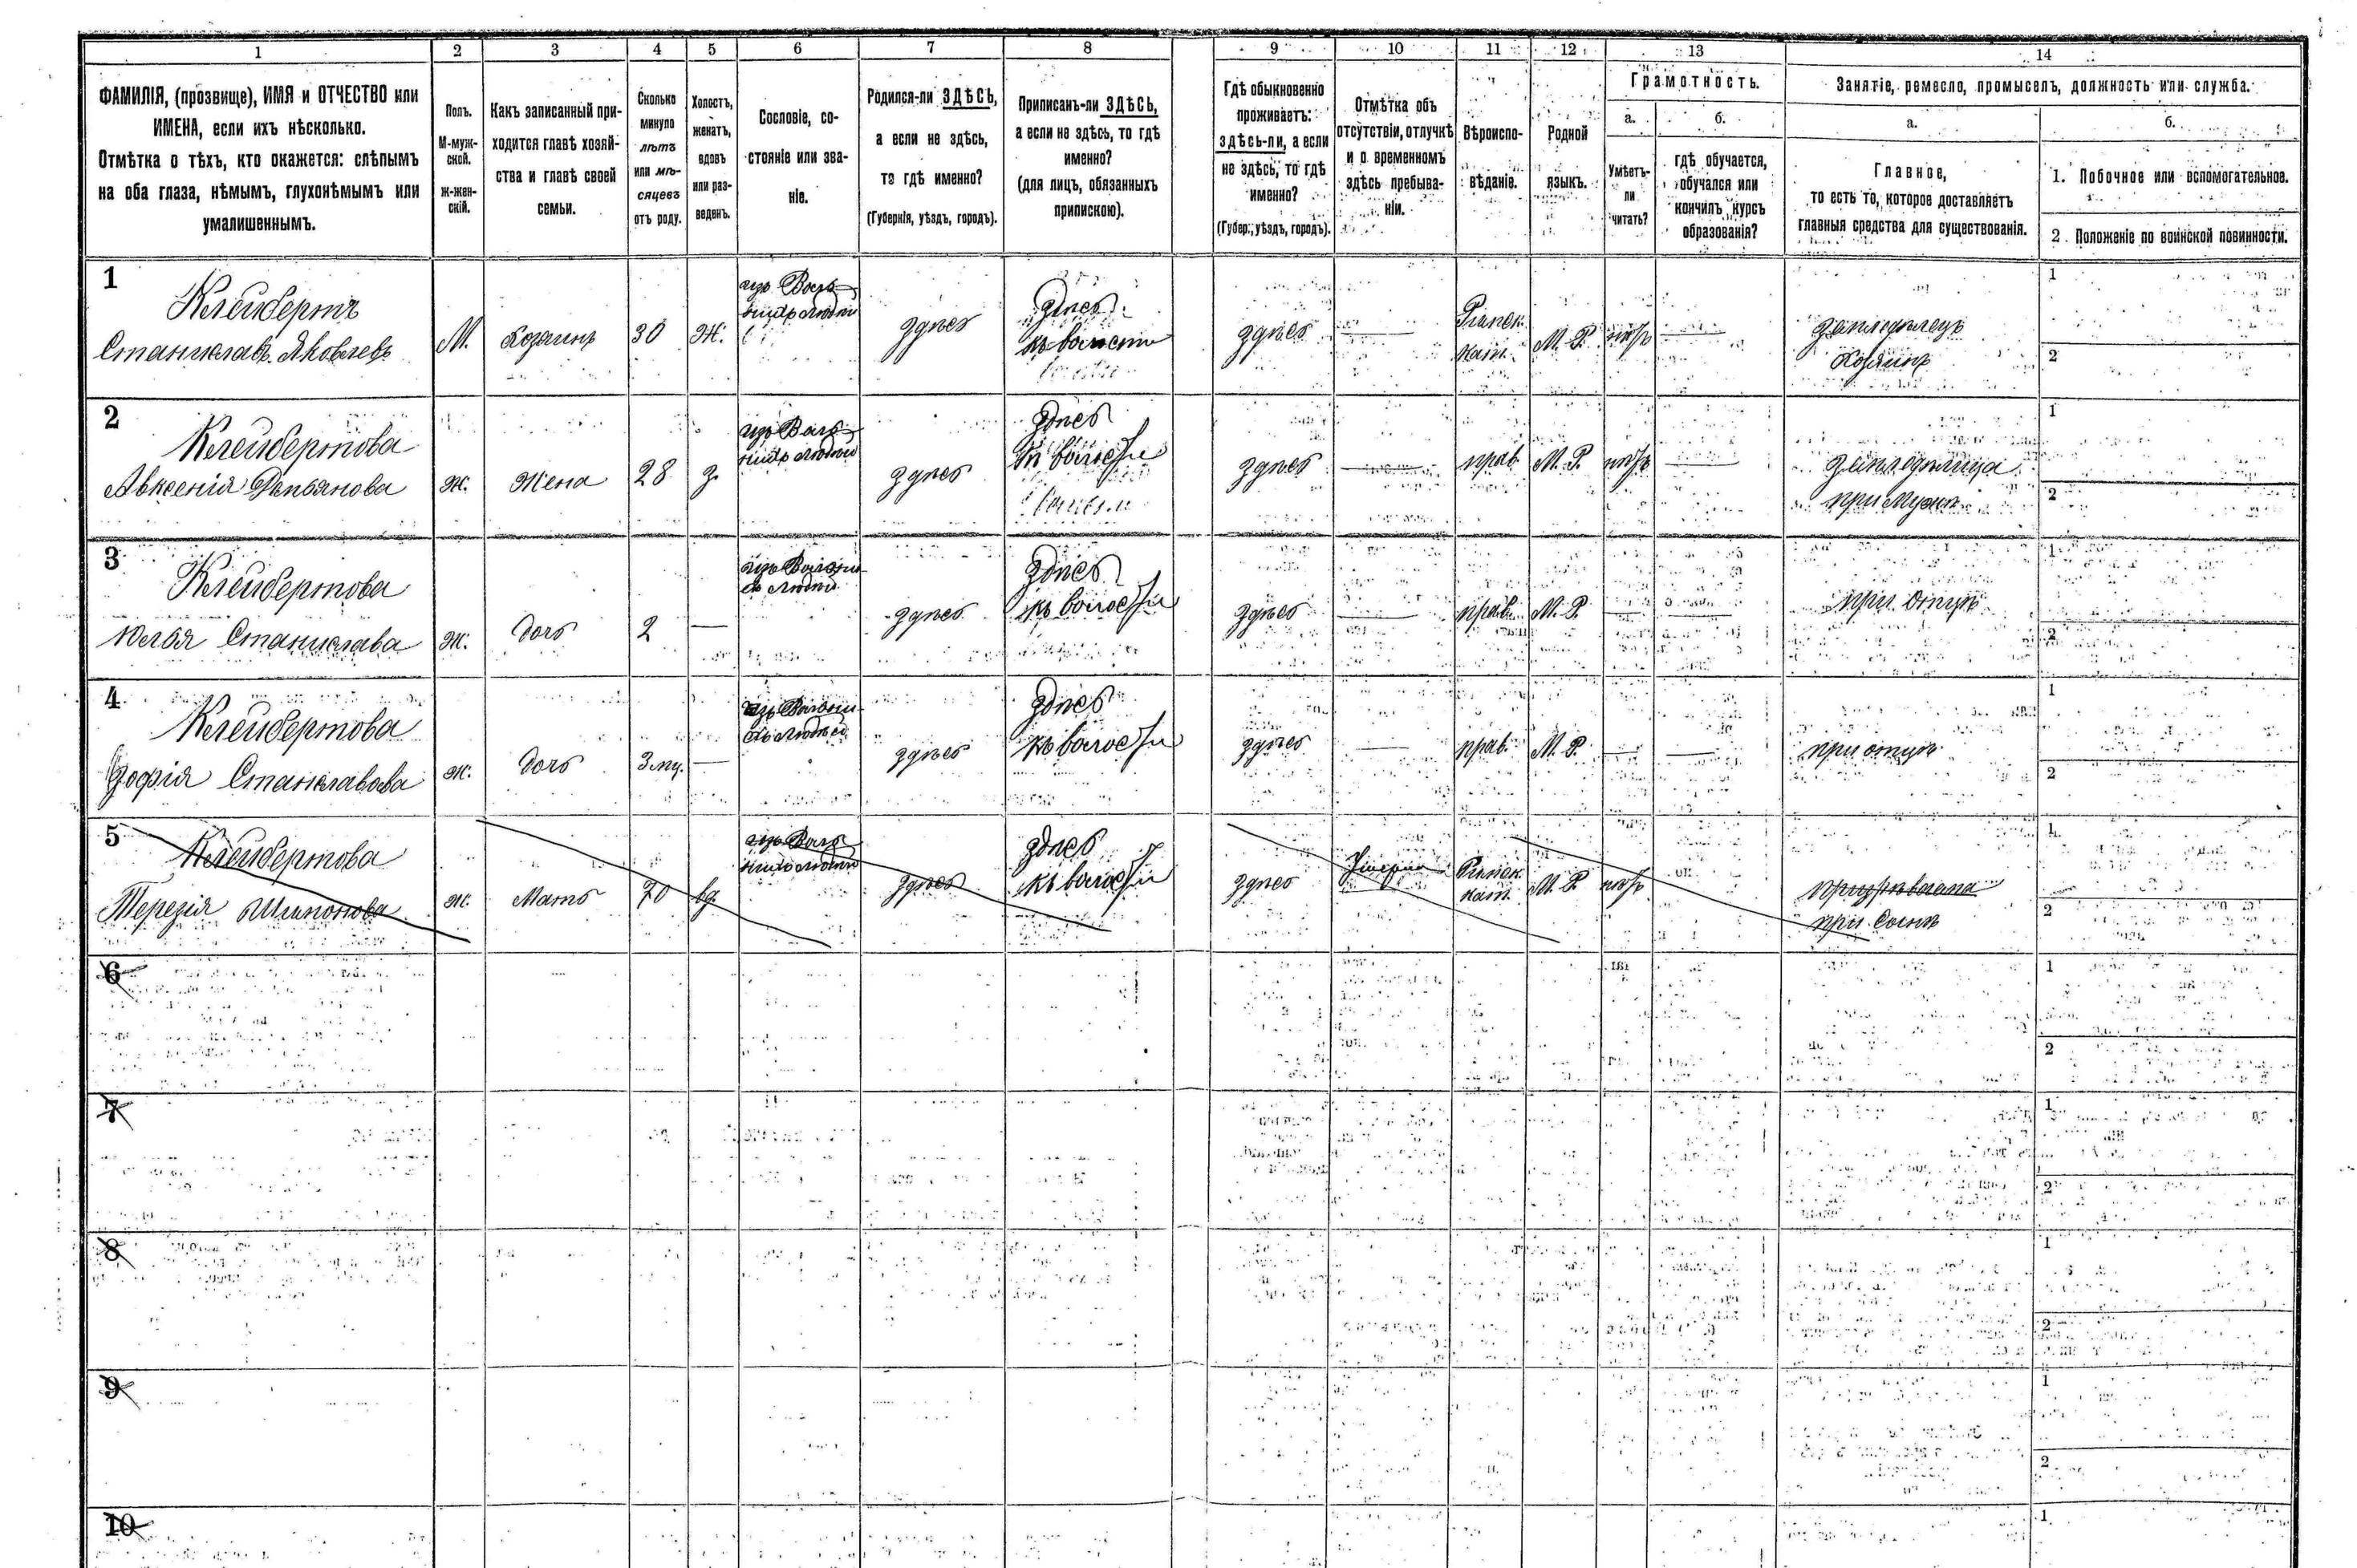 1 2 3 4 5 6 7 8 9 10 11 12 13 14
ФАМИЛІЯ, (прозвище), ИМЯ и ОТЧЕСТВО или
ИМЕНА, если ихъ нѣсколько.
Отмѣтка о тѣхъ, кто окажется: слѣпымъ
на оба глаза, нѣмымъ, глухонѣмымъ или
умалишеннымъ.
Полъ.
М-муж-
ской.
Ж-жен-
скій.
Какъ записанный при-
ходится главѣ хозяй-
ства и главѣ своей
семьи.
Сколько
минуло
лѣтъ
или мѣ-
сяцевъ
отъ роду.
Холостъ,
женатъ,
вдовъ
или раз-
веденъ.
Сословіе, со-
стояніе или зва-
ніе.
Родился-ли ЗДѢСЬ,
а если не здѣсь,
то гдѣ именно?
(Губернія, уѣздъ, городъ).
Приписанъ-ли ЗДѢСЬ,
а если не здѣсь, то гдѣ
именно?
(для лицъ, обязанныхъ
припискою).
Гдѣ обыкновенно
проживаетъ:
здѣсь-ли, а если
не здѣсь, то гдѣ
именно?
(Губер., уѣздъ, городъ).
Отмѣтка объ
отсутствіи, отлучкѣ
и о временномъ
здѣсь пребыва-
ніи.
Вѣроиспо-
вѣданіе.
Родной
языкъ.
Грамотность.
а.
Умѣетъ-
ли
читать?
б.
гдѣ обучается,
обучался или
кончилъ курсъ
образованія?
Занятіе, ремесло, промыселъ, должность или служба.
а.
Главное,
то есть то, которое доставляетъ
главныя средства для существованія.
б.
1. Побочное или вспомогательное.
2. Положеніе по воинской повинности.
1
Клейбертъ
Станиславъ Яковлевъ
М.
хозяинъ
30
Ж.
изъ Воль
здѣсь
здѣсь
къ волости
здѣсь
Римск.
кат.
М. Р.
нѣтъ
земледѣлецъ
хозяинъ
1
2
2
Клейбертова
Авксенія Демьянова
Ж.
Жена
28
з.
изъ Воль
здѣсь
здѣсь
къ волости
здѣсь
прав.
М. Р.
нѣтъ
земледѣлица
при мужѣ
1
2
3
Клейбертова
Юлья Станислава
Ж.
дочь
2
здѣсь
здѣсь
къ волости
здѣсь
прав.
М. Р.
при отцѣ
1
2
4
Клейбертова
Зофія Станиславова
Ж.
дочь
3 мц.
здѣсь
здѣсь
къ волости
здѣсь
прав.
М. Р.
при отцѣ
1
2
5
Клейбертова
Терезія Шимонова
Ж.
Мать
70
вд.
изъ Воль
здѣсь
здѣсь
къ волости
здѣсь
Умерла
Римск.
кат.
М. Р.
нѣтъ
при сынѣ
1
2
6
1
2
7
1
2
8
1
2
9
1
2
10
1